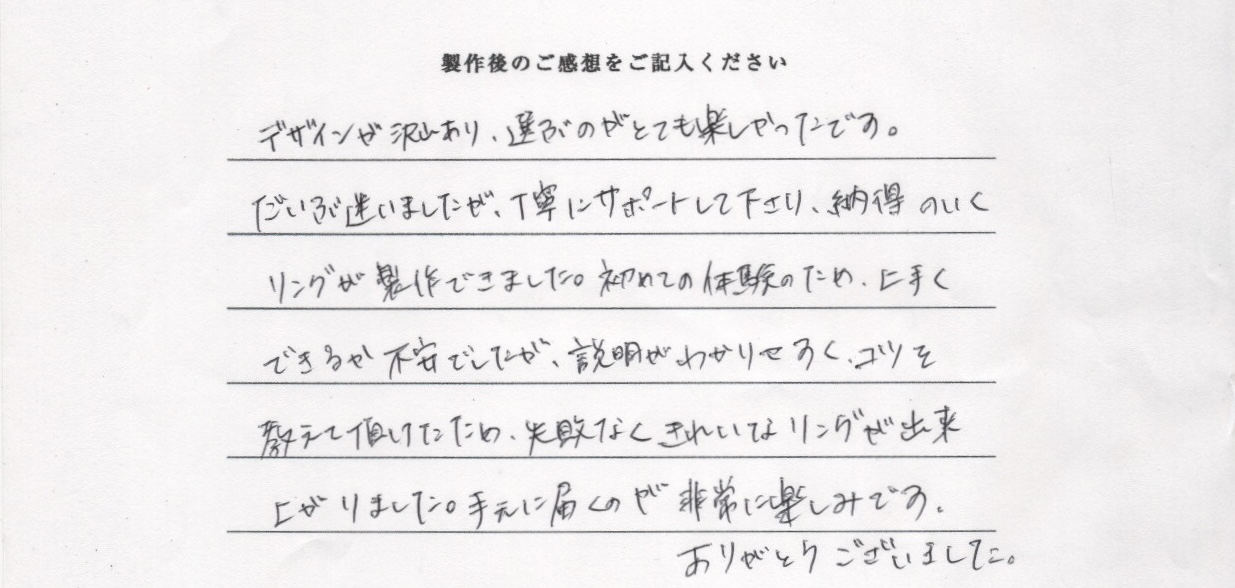 製作後のご感想をご記入ください
デザインが沢山あり、選ぶのがとても楽しかったです。
だいぶ迷いましたが、丁寧にサポートして下さり、納得のいく
リングが製作できました。初めての体験のため、上手く
できるか不安でしたが、説明がわかりやすく、コツを
教えて頂けたため、失敗なくきれいなリングが出来
上がりました。手元に届くのが非常に楽しみです。
ありがとうございました。